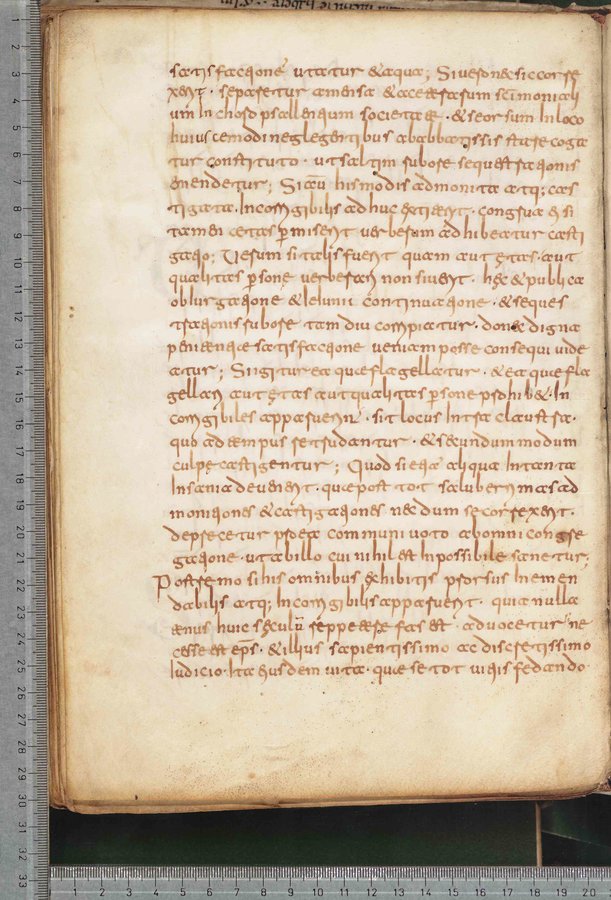 satisfactione utatur & aqua; Si uero nec sic correxerit
xerit. separetur a mensa & a ceterarum scimonialium
um in choro psallentium societate. & seorsum in loco
huiuscemodi neglegentibus ab abbatissis stare cogatur
tur constituto. ut saltim rubore sequestrationis
emendetur; Si aū his modis admonita atq; castigata
tigata. incorrigibilis adhuc extiterit. congrua ei si
tamen aetas pmiserit uerberum adhibeatur casti
gatio; Uerum si talis fuerit quam aut ętas. aut
qualitas psone uerberari non siuerit. hęc & publica
obiurgatione & ieiunii continuatione. & seques
trationis rubore tam diu corripiatur. donec digna
penitentiae satisfactione ueniam posse consequi uide
atur; Si igitur ea quae flagellatur. & ea quae fla
gellari aut ętas aut qualitas psone prohibet. in
corrigibiles apparuerint. sit locus intra claustra.
quo ad tempus retrudantur. & secundum modum
culpe castigentur; Quod si etiā aliqua in tanta
insania deuenerit. quae post tot saluberrimas ad
monitiones & castigationes necdum se correxerit.
depraecetur pro ea communi uoto ab omni congre
gatione. ut ab illo cui nihil est inpossibile sanetur;
Postremo si his omnibus exhibitis prorsus inemen
dabilis atq; incorrigibilis apparuerit. quia nulla
tenus huic sęculū reppetere fas est. aduocetur ne
cesse est eps. & illius sapientissimo ac discretissimo
iudicio. ita eiusdem uita. quae se tot uitiis fedando